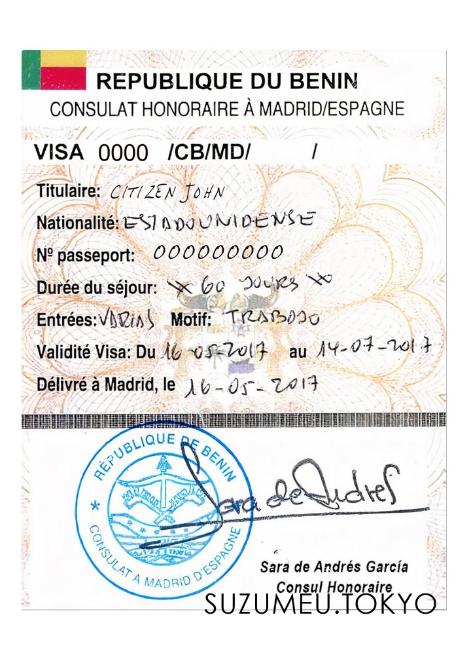 REPUBLIQUE DU BENIN
CONSULAT HONORAIRE À MADRID/ESPAGNE
VISA 0000 /CB/MD/ /
Titulaire: CITIZEN JOHN
Nationalité: ESTADOUNIDENSE
Nº passeport: 000000000
Durée du séjour: 60 JOURS
Entrées: VARIAS Motif: TRABAJO
Validité Visa: Du 16-05-2017 au 14-07-2017
Délivré à Madrid, le 16-05-2017
REPUBLIQUE DE BENIN
* CONSULAT A MADRID D'ESPAGNE
Sara de Andres
Sara de Andrés García
Consul Honoraire
SUZUMEU.TOKYO